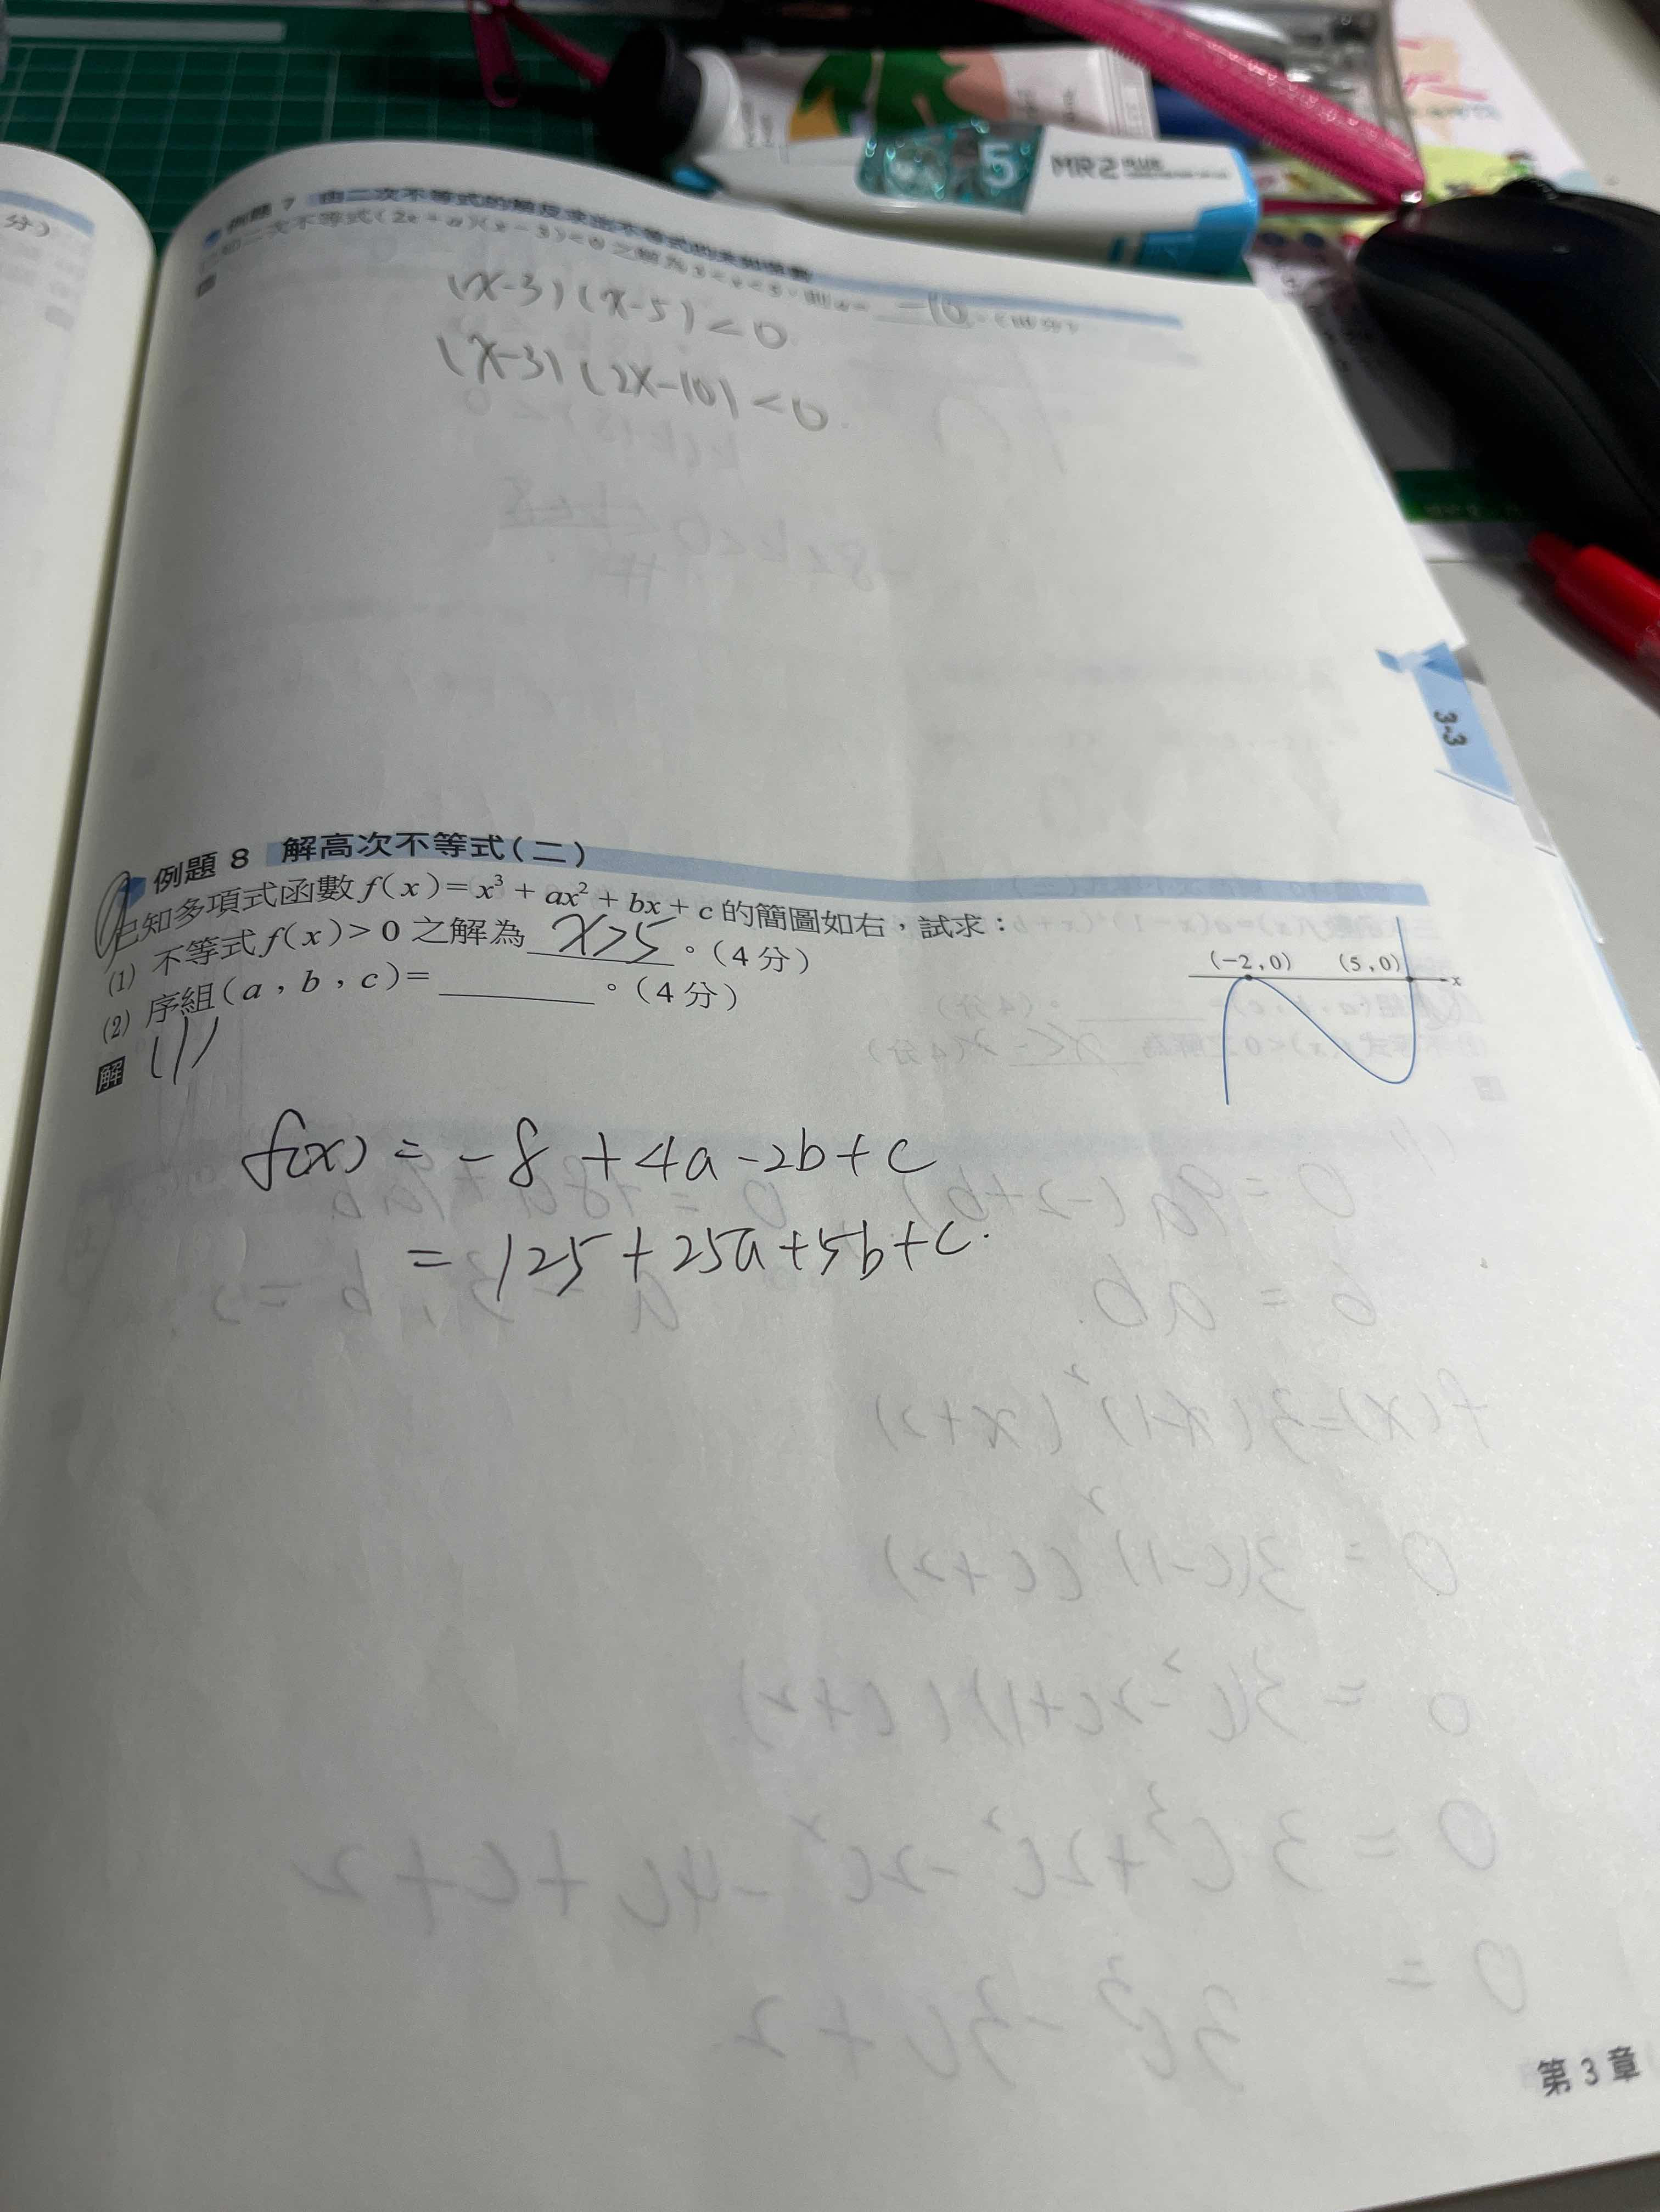 分)
例題 7 由二次不等式的解反求出不等式的未知係數
已知二次不等式(2x+a)(x-3)<0 之解為 3<x<5,則 a= -10 。(4分)
解
(x-3)(x-5)<0
(x-3)(2x-10)<0
MR2 PLUS
5
3-3
例題 8 解高次不等式(二)
已知多項式函數 f(x)=x³+ax²+bx+c 的簡圖如右,試求:
(1) 不等式 f(x)>0 之解為 x>5 。(4分)
(2) 序組(a,b,c)= 。(4分)
(-2,0) (5,0) x
解 (1)
f(x) = -8 +4a-2b+c
= 125+25a+5b+c.
第 3 章